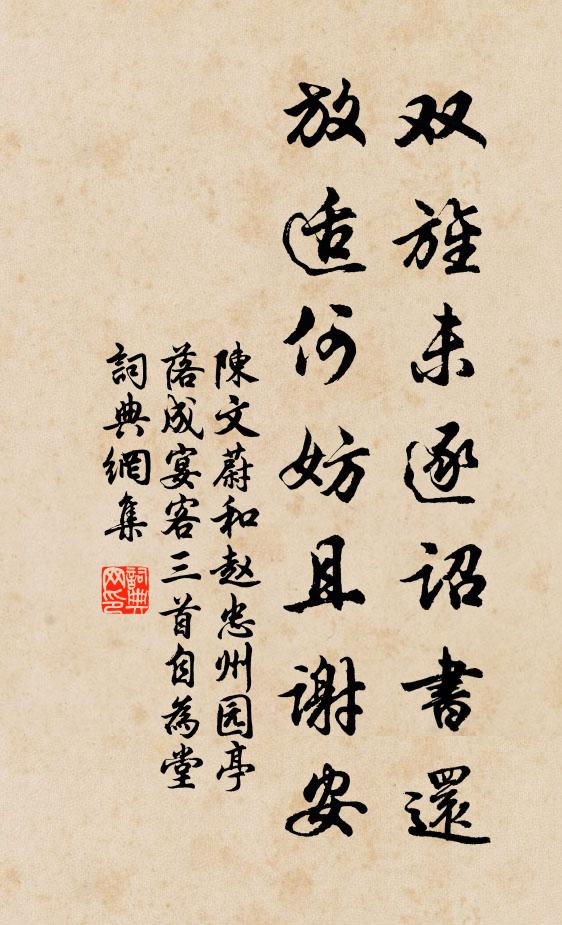 双旌未逐詔書還
放适何妨且謝安
陳文蔚和赵忠州园亭
落成宴客三首自為堂
詞典網集
詞典网印